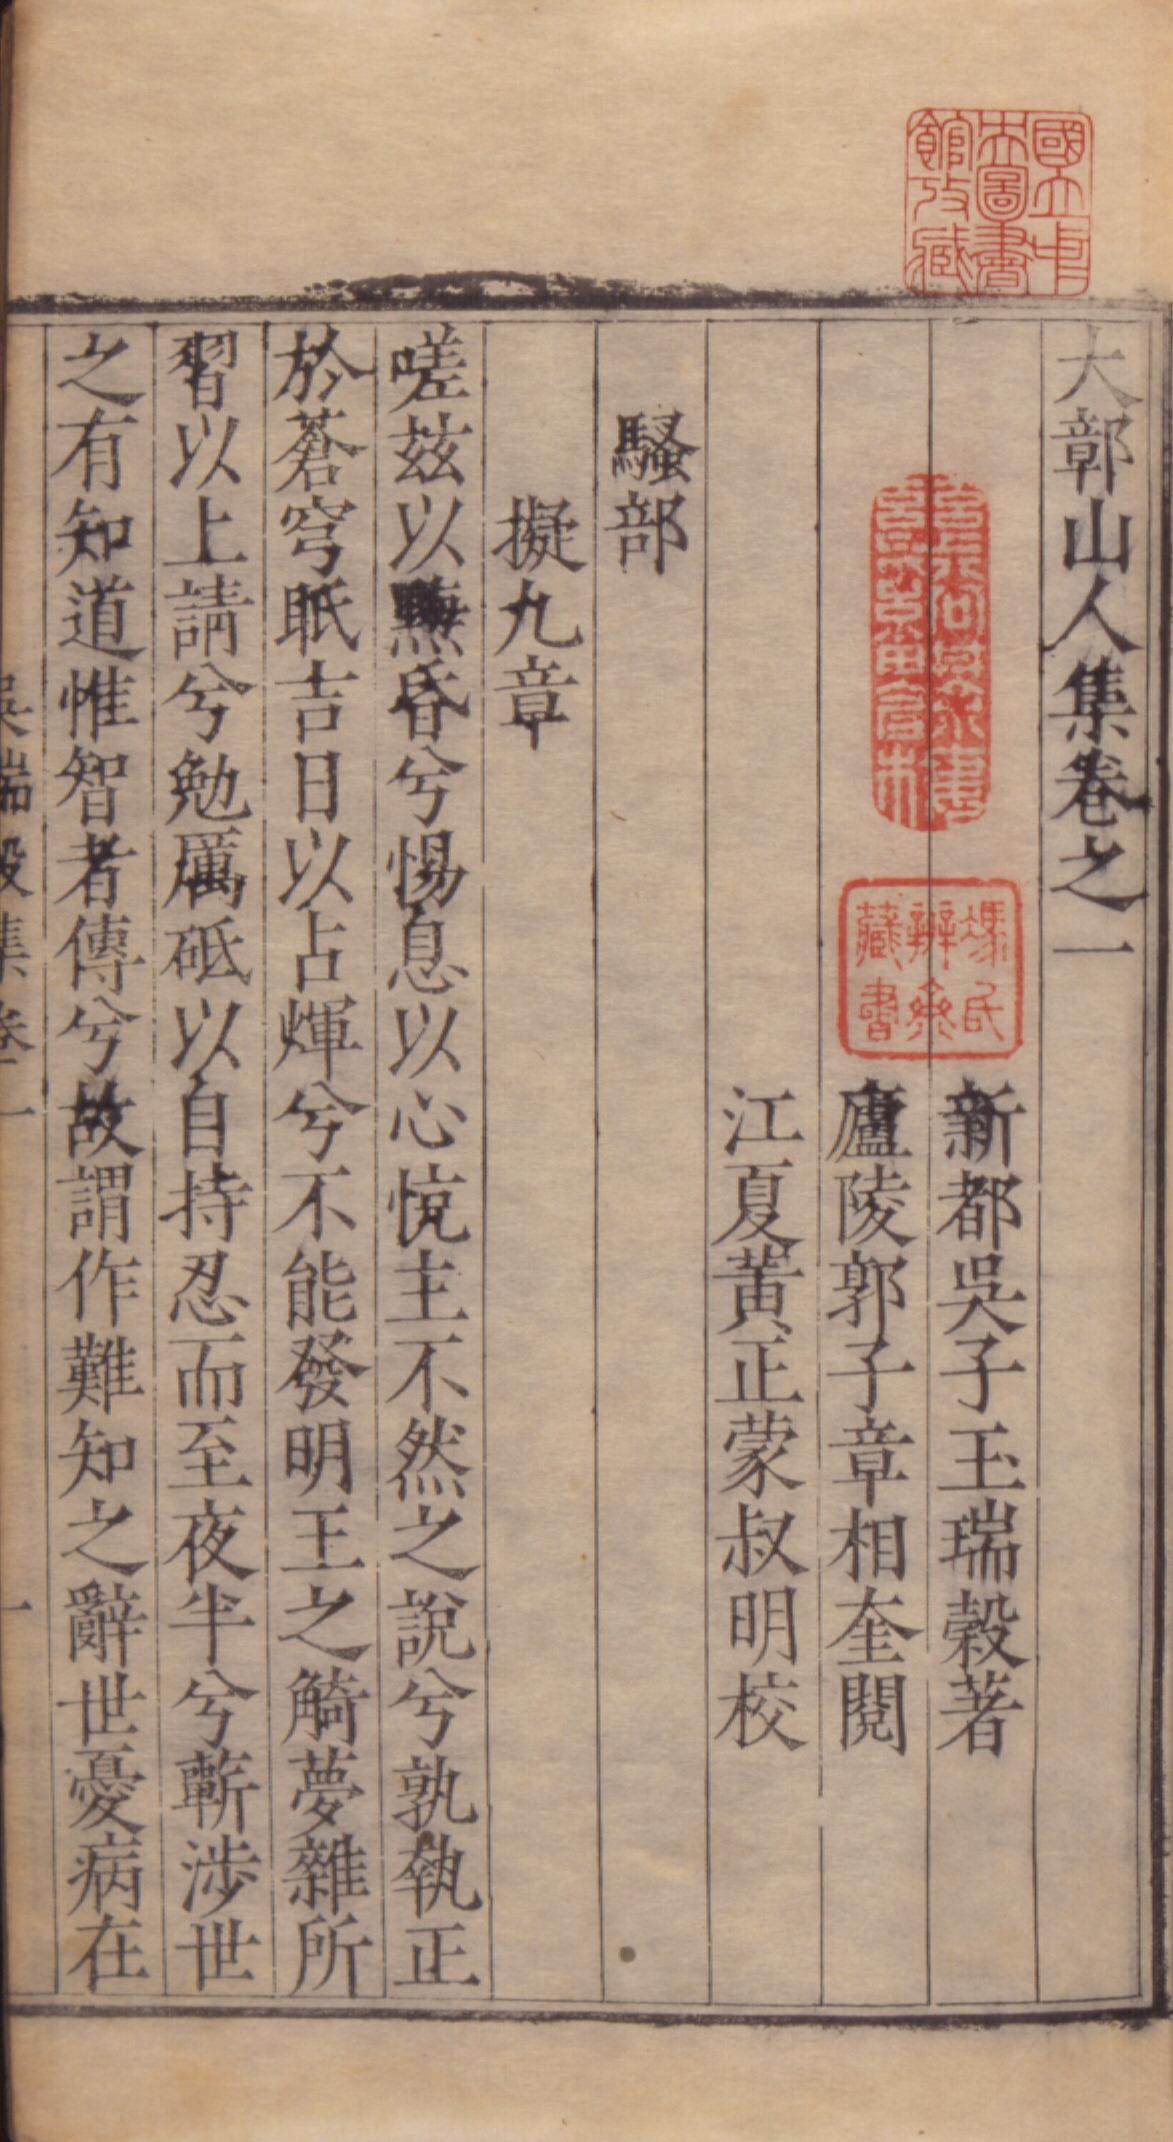 大鄣山人集卷之一
新都吳子玉瑞穀著
廬陵郭子章相奎閱
江夏黃正蒙叔明校
騷部
擬九章
嗟茲以黣昏兮惕息以心悗主不然之說兮孰執正
於蒼穹眡吉日以占煇兮不能發明王之觭夢雜所
習以上請兮勉厲砥以自持忍而至夜半兮蘄涉世
之有知道惟智者傳兮故謂作難知之辭世憂病在
吳瑞穀集卷一
一
國立中
央圖書
館攷藏
馮氏
辨齋
藏書